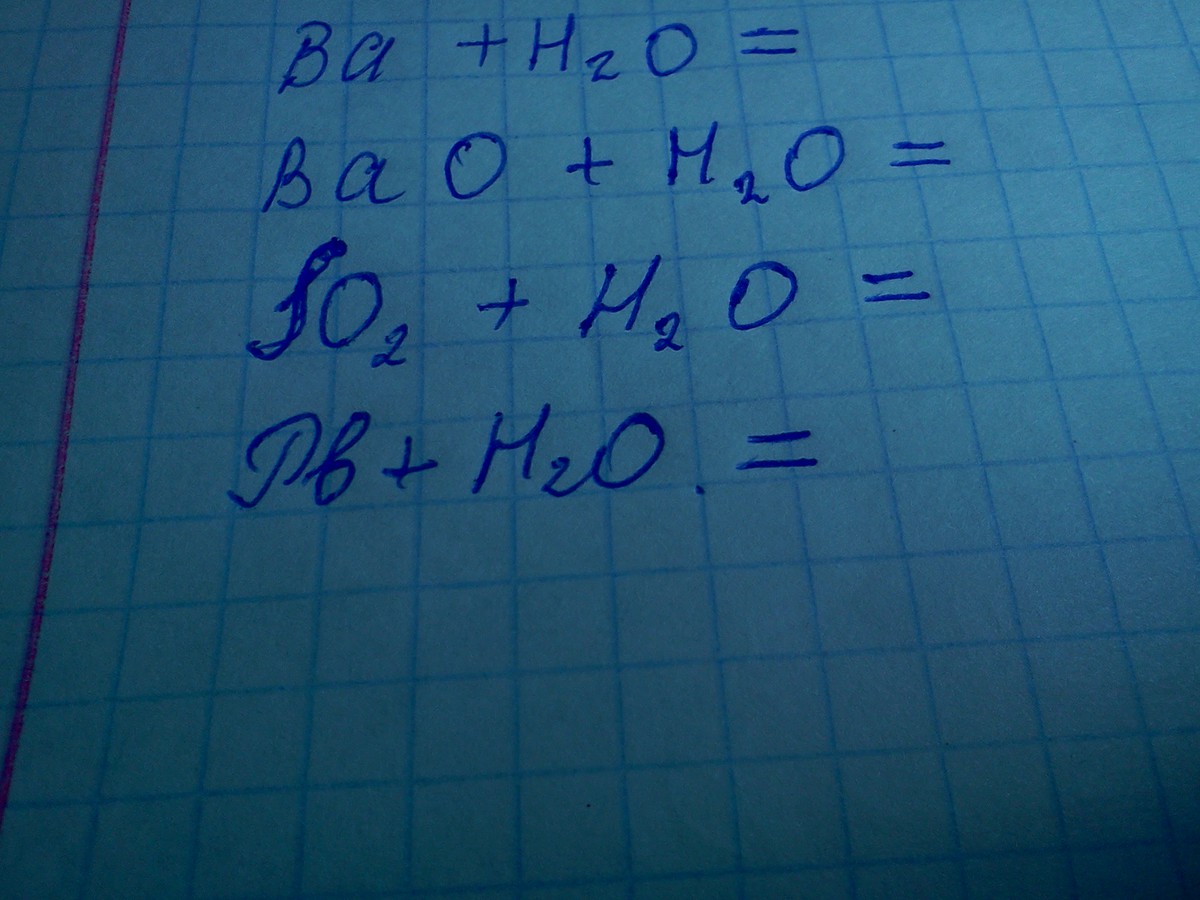 Ba + H₂O =
BaO + H₂O =
SO₂ + H₂O =
Pb + H₂O. =